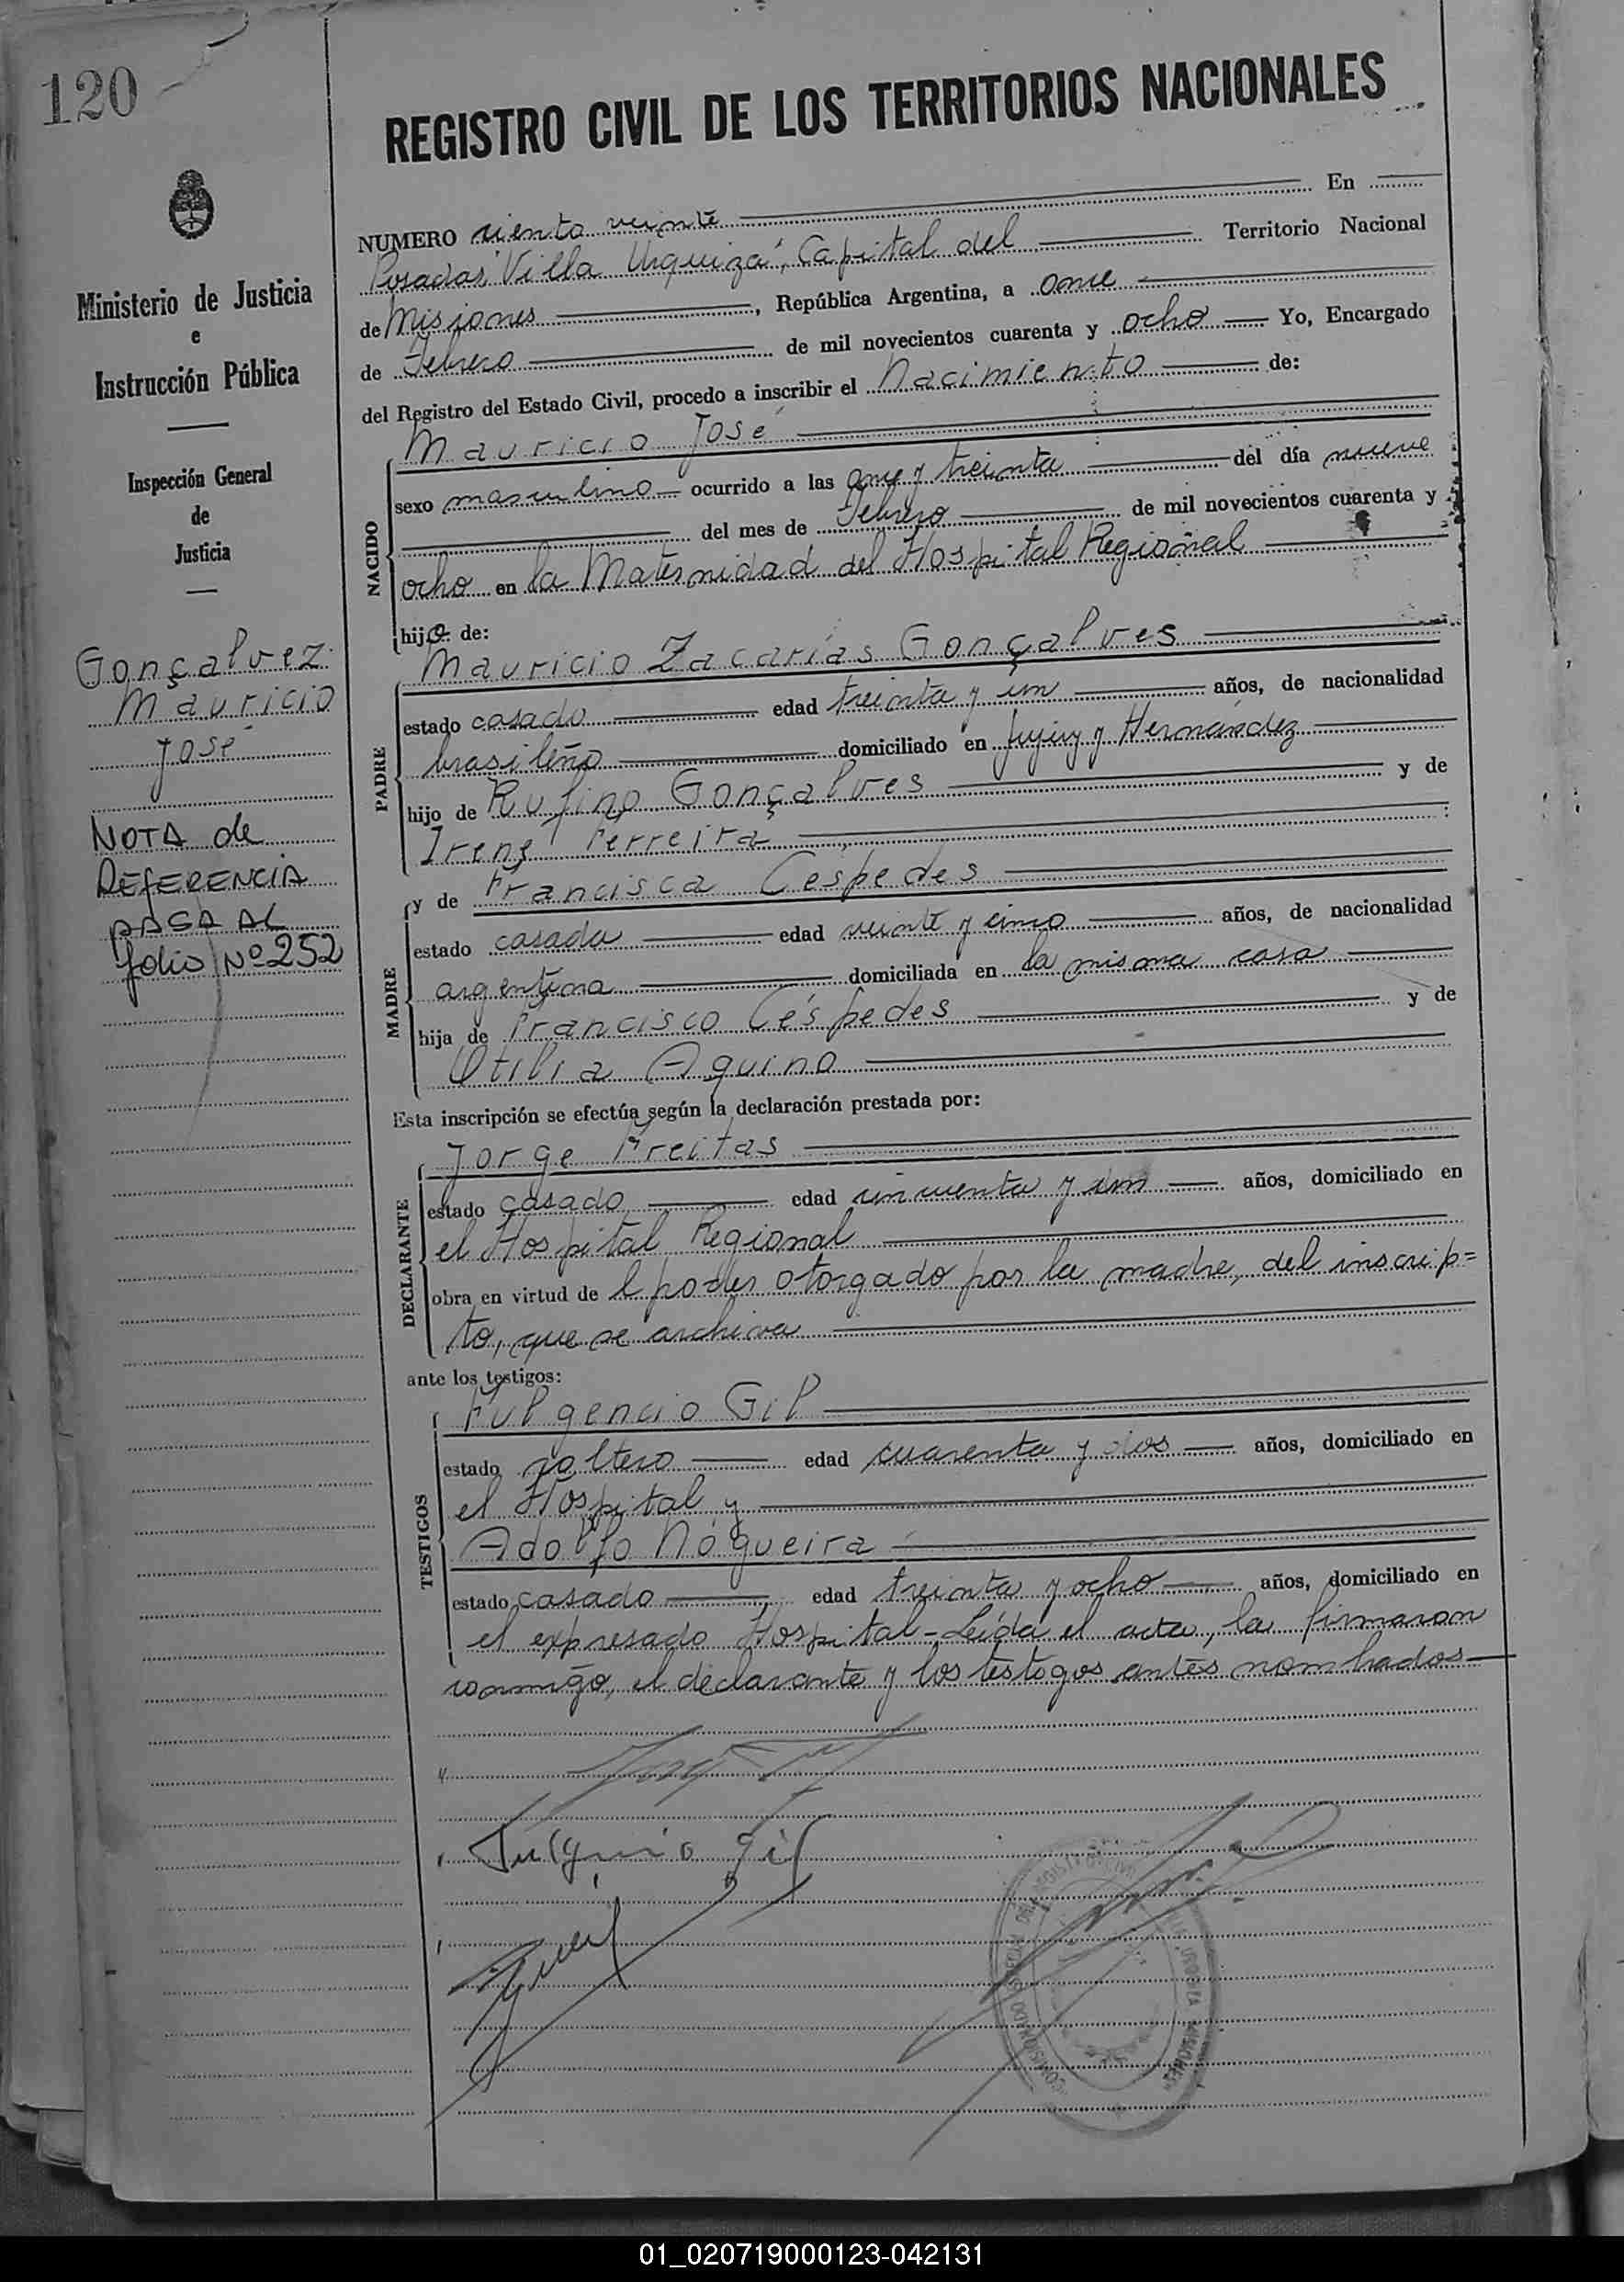 120
REGISTRO CIVIL DE LOS TERRITORIOS NACIONALES
Ministerio de Justicia
e
Instrucción Pública
Inspección General
de
Justicia
Gonçalvez
Mauricio
José
NOTA de
REFERENCIA
PASA AL
folio Nº 252
NUMERO ciento veinte En
Posadas "Villa Urquiza", Capital del Territorio Nacional
de Misiones, República Argentina, a once
de Febrero de mil novecientos cuarenta y ocho Yo, Encargado
del Registro del Estado Civil, procedo a inscribir el nacimiento de:
NACIDO
Mauricio José
sexo masculino ocurrido a las once y treinta del día nueve
del mes de Febrero de mil novecientos cuarenta y
ocho en la Maternidad del Hospital Regional
hijo de:
PADRE
Mauricio Zacarías Gonçalves
estado casado edad treinta y un años, de nacionalidad
brasileño domiciliado en Jujuy y Hernández
hijo de Rufino Gonçalves y de
Irene Ferreira
MADRE
y de Francisca Céspedes
estado casada edad veinte y cinco años, de nacionalidad
argentina domiciliada en la misma casa
hija de Francisco Céspedes y de
Otilia Aquino
Esta inscripción se efectúa según la declaración prestada por:
DECLARANTE
Jorge Freitas
estado casado edad cincuenta y un años, domiciliado en
el Hospital Regional
obra en virtud de l poder otorgado por la madre, del inscrip=
to, que se archiva
ante los testigos:
TESTIGOS
Fulgencio Gil
estado soltero edad cuarenta y dos años, domiciliado en
el Hospital y
Adolfo Nogueira
estado casado edad treinta y ocho años, domiciliado en
el expresado Hospital - Leída el acta, la firmaron
conmigo, el declarante y los testigos antes nombrados
Fulgencio Gil
01_020719000123-042131